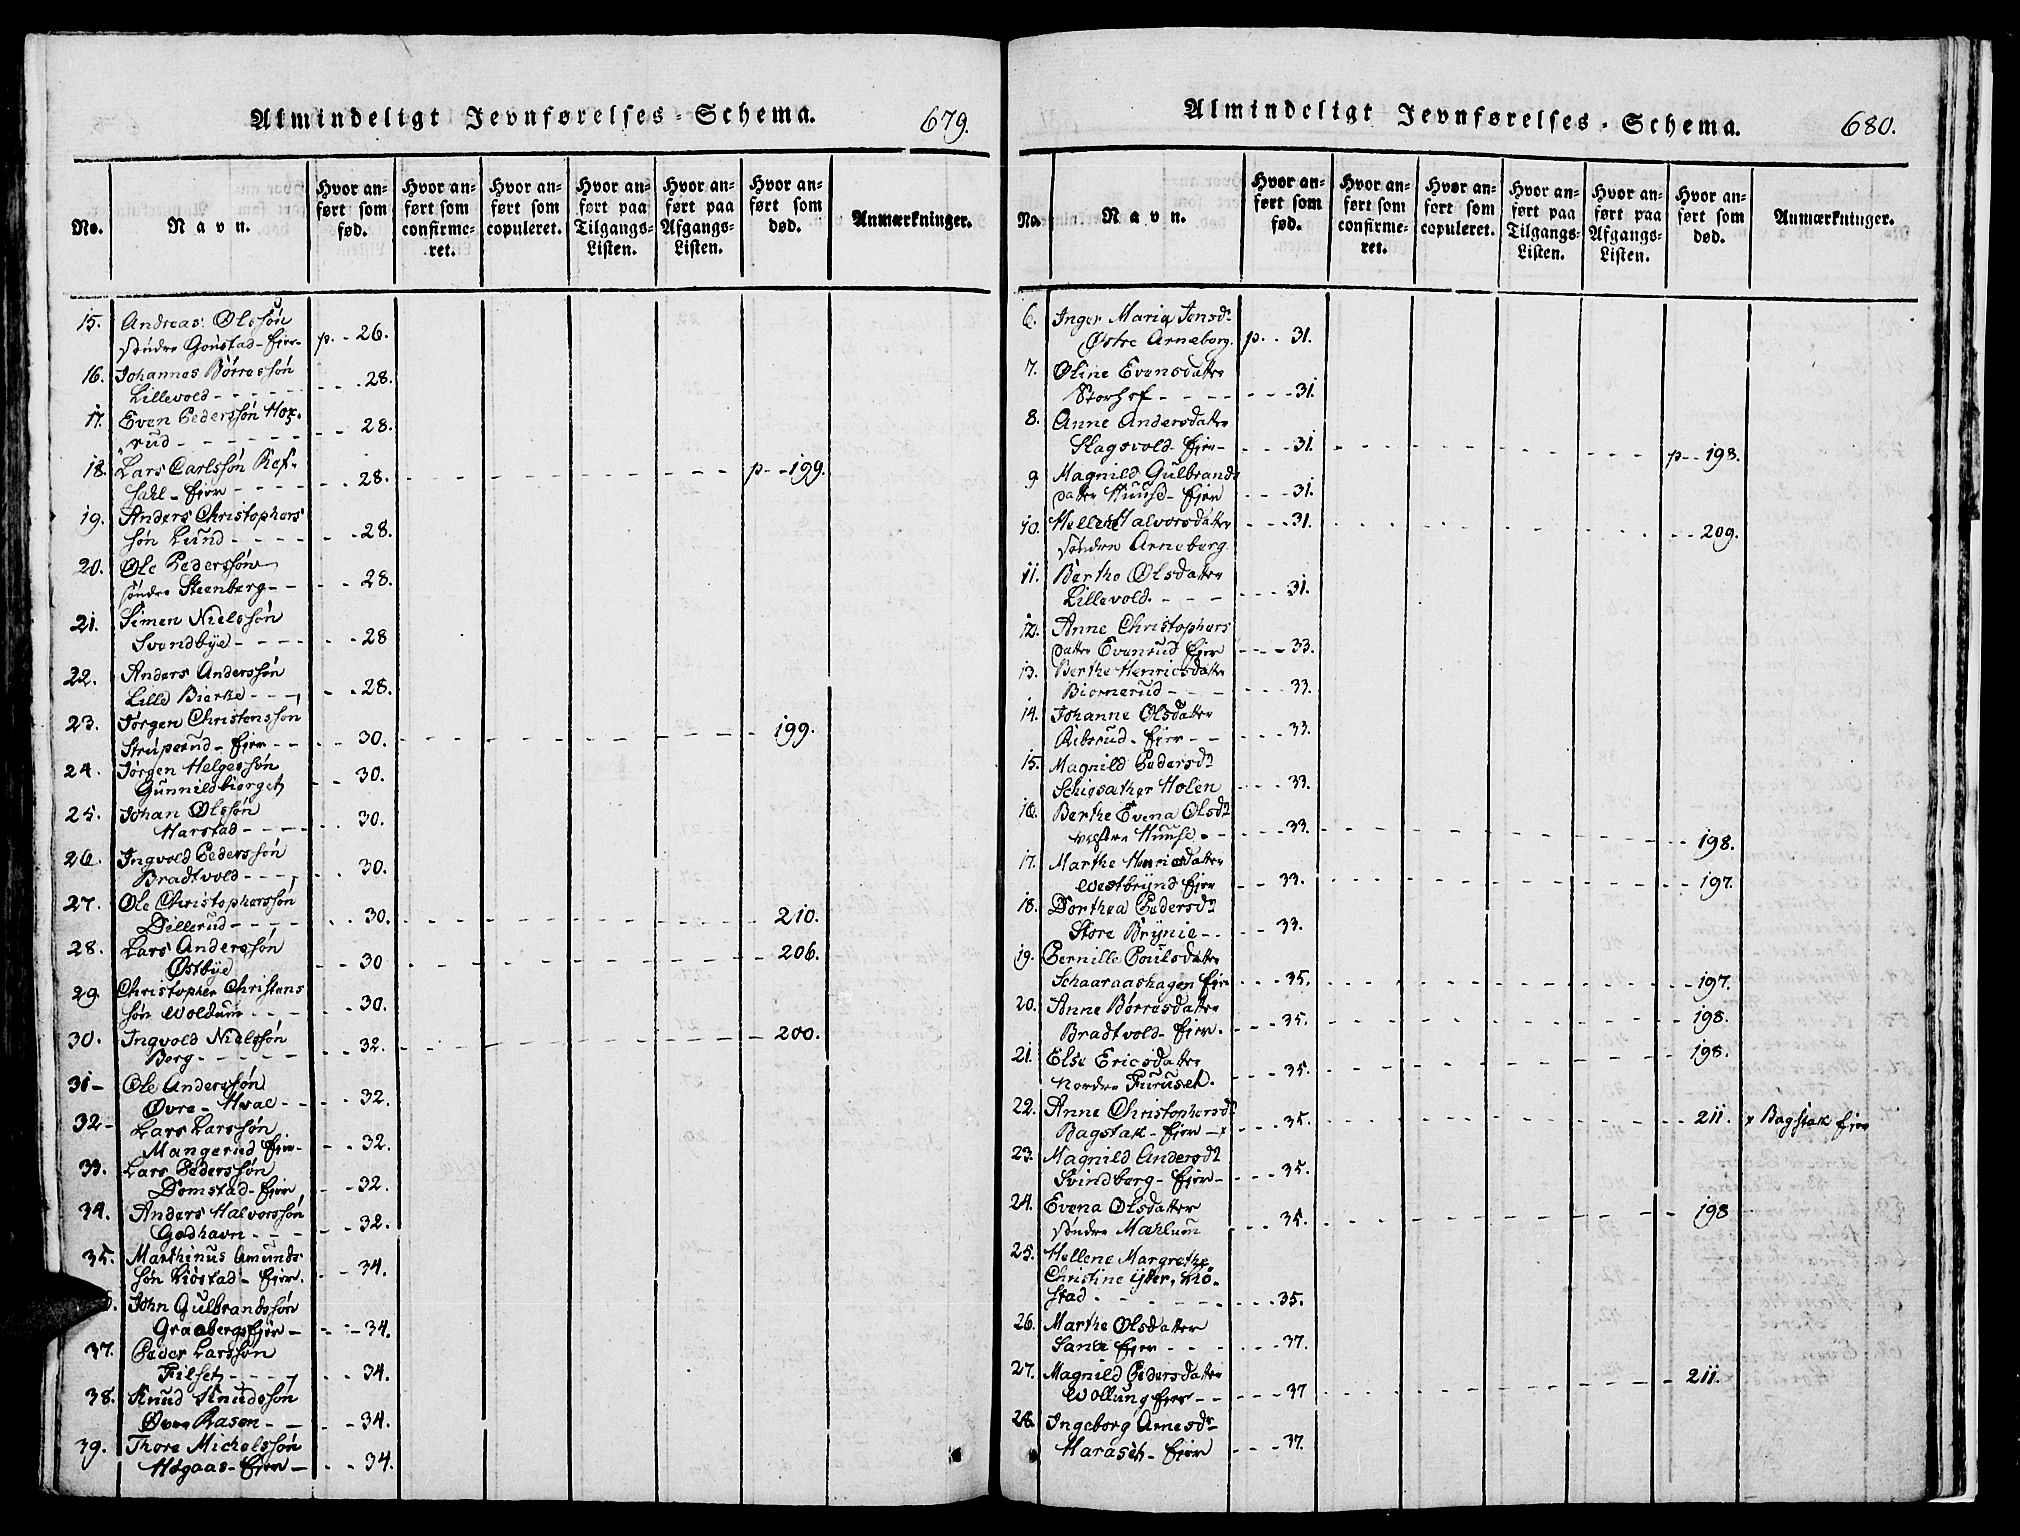 Almindeligt Jevnførelses-Schema.
679.
No.
Navn.
Hvor anført som fød.
Hvor anført som confirmeret.
Hvor anført som copuleret.
Hvor anført paa Tilgangs-Listen.
Hvor anført paa Afgangs-Listen.
Hvor anført som død.
Anmærkninger.
15. Andreas Olssøn
søndre Goustad - Eier - p. - 26.
16. Johannes Børressøn
Lillevold - - - - 28.
17. Even Pederssøn Hox-
rud - - - - 28.
18. Lars Carlssøn Kaf-
sahl - Eier - - - 28. p. - 199.
19. Anders Christophers
søn Lund - - - - 28.
20. Ole Pederssøn
søndre Steenberg - - - 28.
21. Simen Nielssøn
Svendbye - - - - 28
22. Anders Anderssøn
Lille Bierke - - - 28.
23. Jørgen Christenssøn
Struperud - Eier - - - 30. - 199.
24. Jørgen Helgessøn
Gunnildbierget - - 30.
25. Johan Olssøn
Harstad - - - - 30.
26. Ingvold Pederssøn
Bradtvold - - - - 30.
27. Ole Christopherssøn
Dillerud - - - - 30. - 210.
28. Lars Anderssøn
Østbye - - 30 - 206.
29. Christopher Christens
søn Woldum - - - 30.
30. Ingvold Nielssøn
Berg - - - - 32. - 200.
31 - Ole Anderssøn
Øvre - Hval - - - 32.
32 - Lars Larssøn
Mangerud Eier - - 32.
33. Lars Pederssøn
Domstad - Eier - - 32.
34. Anders Halvorssøn
Godhavn - - - - 32.
35. Marthinus Amunds
søn Kiøstad - Eier. - - 34.
John Gulbrandssøn
Graabergs Eier - - - 34.
37. Peder Larssøn
Filset - - - - 34.
38. Knud Knudssøn
Øvre Rasen - - - 34.
39. Thore Michelssøn
Høgaas - Eier - - - 34.
Almindeligt Jevnførelses-Schema.
680.
No.
Navn.
Hvor anført som fød.
Hvor anført som confirmeret.
Hvor anført som copuleret.
Hvor anført paa Tilgangs-Listen.
Hvor anført paa Afgangs-Listen.
Hvor anført som død.
Anmærkninger.
6. Inger Maria Jensdr
Østre Arneberg. p. - 31.
7. Oline Evensdatter
Storhof - - - - 31.
8. Anne Andersdatter
Slagsvold - Eier - - - 31. p - 198.
9 Magnild Gulbrands
datter Huuse - Eier - - - 31.
10. Hellene Halvorsdatter - - - 31. - 209.
søndre Arneberg
11. Berthe Olsdatter
Lillevold. - - - - 31.
12. Anne Christophers
datter Evenrud Eier - - - 33.
13. Berthe Henricsdatter
Biørnerud - - - - 33.
14. Johanne Olsdatter
Riberud - Eier - - - 33.
15. Magnild Pedersdr
Schiesæther Holen - - - 33.
16. Berthe Evena Olsdr
vestre Huuse - - - 33. - 198.
17. Marthe Henricsdatter
Westbynd Eier - - 33. - 197.
18. Dorthea Pedersdr
Store Brynie - - - 33.
19. Pernille Poulsdatter
Schaaraashagen Eier - - 35. - 197.
20. Anne Børresdatter
Bradtvold - Eier. - - - 35. - 198.
21. Else Ericsdatter
Nordre Furuset. - - - 35. - 198.
22. Anne Christophersdr
Bagstak - Eier - x - - 35. - 211. x Bagstak Eier
23. Magnild Andersdr
Svindberg - Eier - - - 35.
24. Evena Olsdatter
søndre Mahlum - - - 35. - 198
25. Hellene Margrethe
Christine Ytter, Kiø-
stad - - - - 35.
26. Marthe Olsdatter
Sand Eier - - - - 37.
27. Magnild Pedersdatter
Wollung Eier - - - 37 - 211.
28. Ingeborg Arnesdr
Haraset - Eier - - - 37.